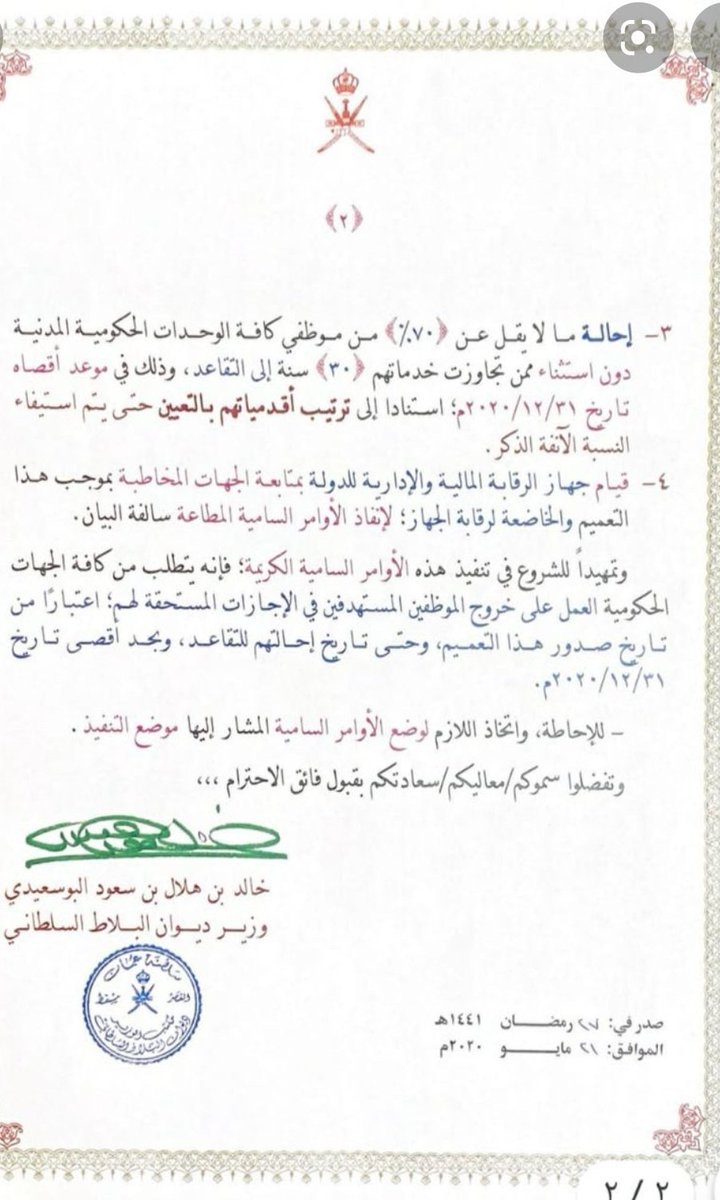 ﴿٢﴾
٣- إحالة ما لا يقل عن ﴿٧٠٪﴾ من موظفي كافة الوحدات الحكومية المدنية
دون استثناء ممن تجاوزت خدماتهم ﴿٣٠﴾ سنة إلى التقاعد، وذلك في موعد أقصاه
تاريخ ٢٠٢٠/١٢/٣١م؛ استنادا إلى ترتيب أقدمياتهم بالتعيين حتى يتم استيفاء
النسبة الآنفة الذكر.
٤- قيام جهاز الرقابة المالية والإدارية للدولة بمتابعة الجهات المخاطبة بموجب هذا
التعميم والخاضعة لرقابة الجهاز؛ لإنفاذ الأوامر السامية المطاعة سالفة البيان.
وتمهيداً للشروع في تنفيذ هذه الأوامر السامية الكريمة؛ فإنه يتطلب من كافة الجهات
الحكومية العمل على خروج الموظفين المستهدفين في الإجازات المستحقة لهم؛ اعتبارًا من
تاريخ صدور هذا التعميم، وحتى تاريخ إحالتهم للتقاعد، وبحد أقصى تاريخ
٢٠٢٠/١٢/٣١م.
- للإحاطة، واتخاذ اللازم لوضع الأوامر السامية المشار إليها موضع التنفيذ.
وتفضلوا سموكم/معاليكم/سعادتكم بقبول فائق الاحترام ،،،
خالد بن هلال بن سعود البوسعيدي
وزير ديوان البلاط السلطاني
سلطنة عمان
القصر مسقط
مكتب الوزير
ديوان البلاط السلطاني
صدر في: ٢٧ رمضان ١٤٤١هـ
الموافق: ٢١ مايو ٢٠٢٠م
٢ / ٢